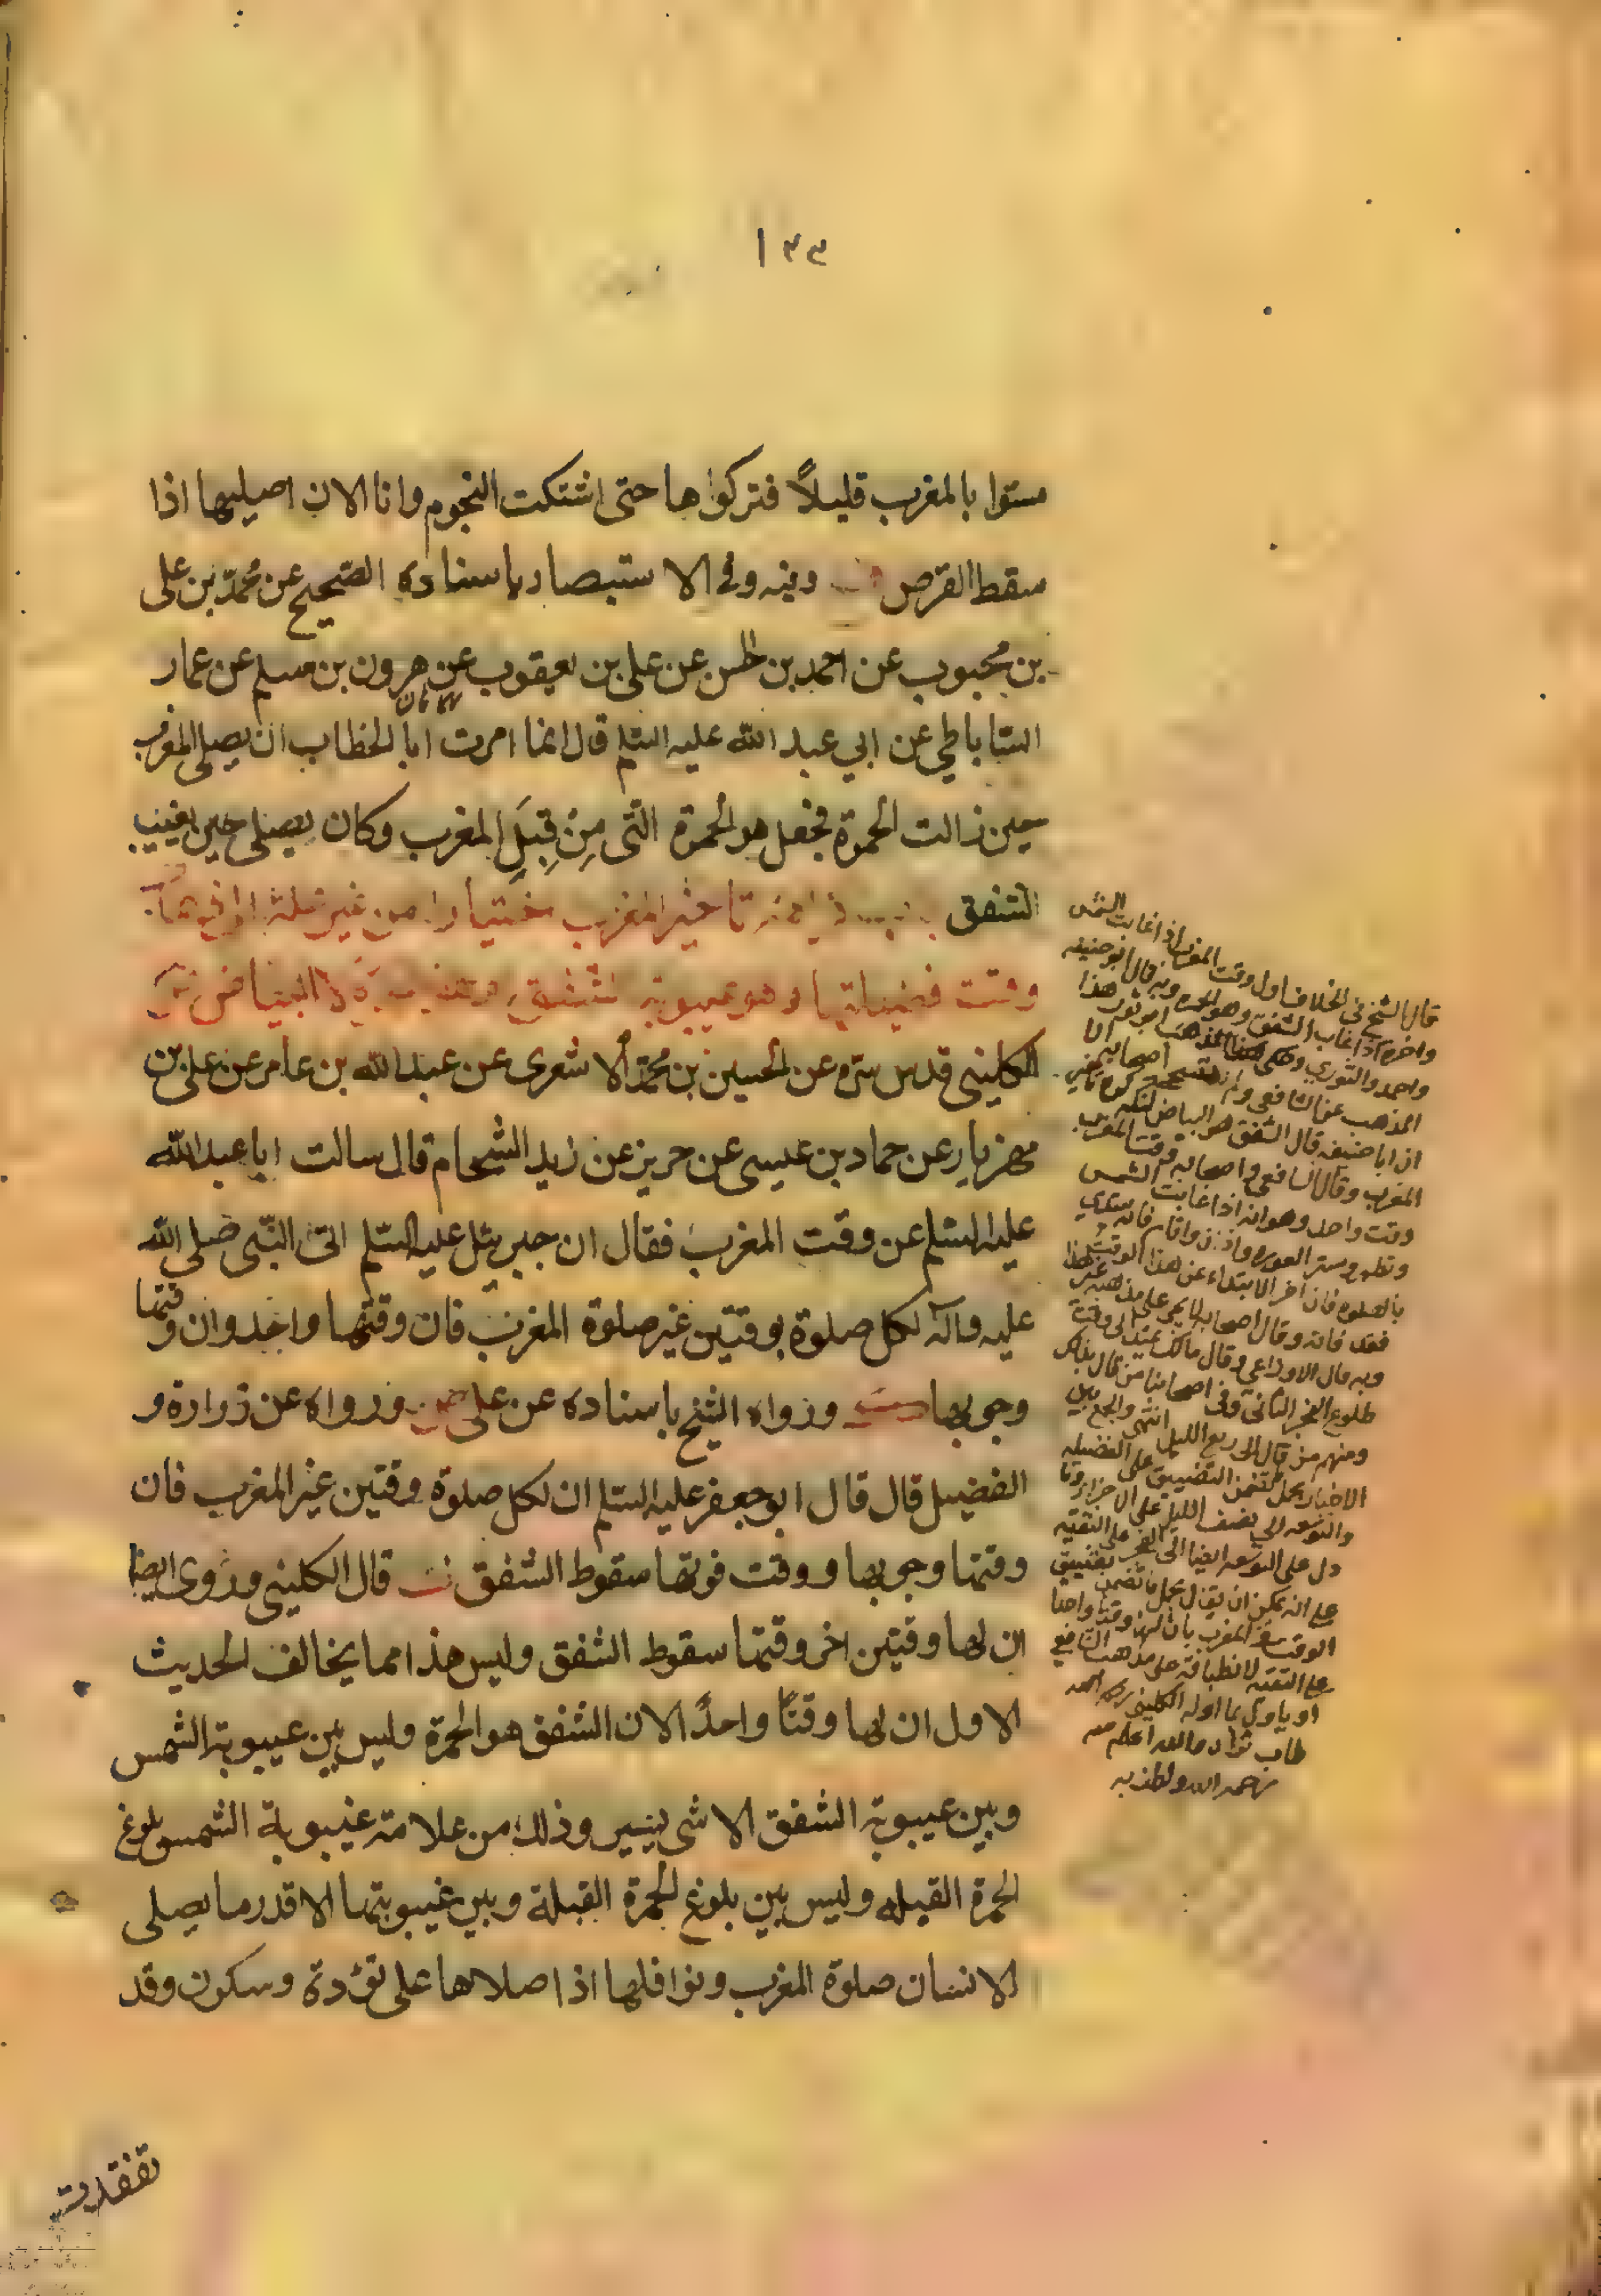 ١٣٣
مستوا بالمغرب قليلاً فتركوا ها حتى اشتبكت النجوم وانا الان اصليها اذا
سقط القرص وفيه وفى الاستبصار باسناده الصحيح عن محمد بن على
بن محبوب عن احمد بن الحسن عن على بن يعقوب عن هرون بن مسلم عن عمار
الساباطى عن ابي عبد الله عليه السلم قال انما امرت ابا الخطاب ان يصلى المغرب
حين زالت الحمرة فجعل هو الحمرة التى مِنْ قِبَلِ المغرب وكان يصلى حين يغيب
الشفق تاخير المغرب اختيارا من غير علة
وقت فضيلتها وهو غيبوبة الشفق البياض
الكلينى قدس سره عن الحسين بن محمد الاشعرى عن عبد الله بن عامر عن على بن
مهزيار عن حماد بن عيسى عن حريز عن زيد الشحام قال سالت ابا عبد الله
عليه السلم عن وقت المغرب فقال ان جبرئيل عليه السلم اتى النبى صلى الله
عليه وآله لكل صلوة بوقتين غير صلوة المغرب فان وقتها واحد وان وقتها
وجوبها ورواه الشيخ باسناده عن على ورواه عن زرارة و
الفضيل قال قال ابو جعفر عليه السلم ان لكل صلوة وقتين غير المغرب فان
وقتها وجوبها ووقت فوتها سقوط الشفق قال الكلينى وروى ايضا
ان لها وقتين اخر وقتها سقوط الشفق وليس هذا مما يخالف الحديث
الاول ان لها وقتًا واحدًا لان الشفق هو الحمرة وليس بين غيبوبة الشمس
وبين غيبوبة الشفق الا شى يسير وذلك من علامة غيبوبة الشمس بلوغ
الحمرة القبله وليس بين بلوغ الحمرة القبلة وبين غيبوبتها الا قدر ما يصلى
الانسان صلوة المغرب ونوافلها اذا صلاها على تؤدة وسكون وقد
تفقدت
قال الشيخ فى الخلاف اول وقت المغرب اذا غابت الشمس
واخره اذا غاب الشفق وهو الحمره وبه قال ابو حنيفه
واحمد والثوري وحكى ابو ثور هذا
المذهب عن الشافعى ولم اصحابه الا
ان ابا حنيفه قال الشفق هو البياض لكنه كره تاخير
المغرب وقال الشافعى واصحابه وقت المغرب
وقت واحد وهو انه اذا غابت الشمس
وتطهر وستر العوره واذن واقام فانه يبتدي
بالصلوه فان اخر الابتداء عن هذا الوقت
فقد فاته وقال اصحابه لا يجى على مذهبه غير هذا
وبه قال الاوزاعي وقال مالك يمتد الى وقت
طلوع الفجر الثانى وفى اصحابنا من قال بذلك
ومنهم من قال الى ربع الليل انتهى والجمع بين
الاخبار بحمل تضمن التضييق على الفضيله
والتوسعه الى نصف الليل على الاجزاء وما
دل على التوسعه ايضا الى الفجر على التقيه
على انه يمكن ان يقال بحمل ما تضمن تضييق
الوقت فى المغرب بان لها وقتا واحدا
على التقيه لانطباقه على مذهب الشافعي
او ياول بما اوله الكلينى رحمه الله
طاب ثراه والله اعلم منه
رحمه الله ولطف به